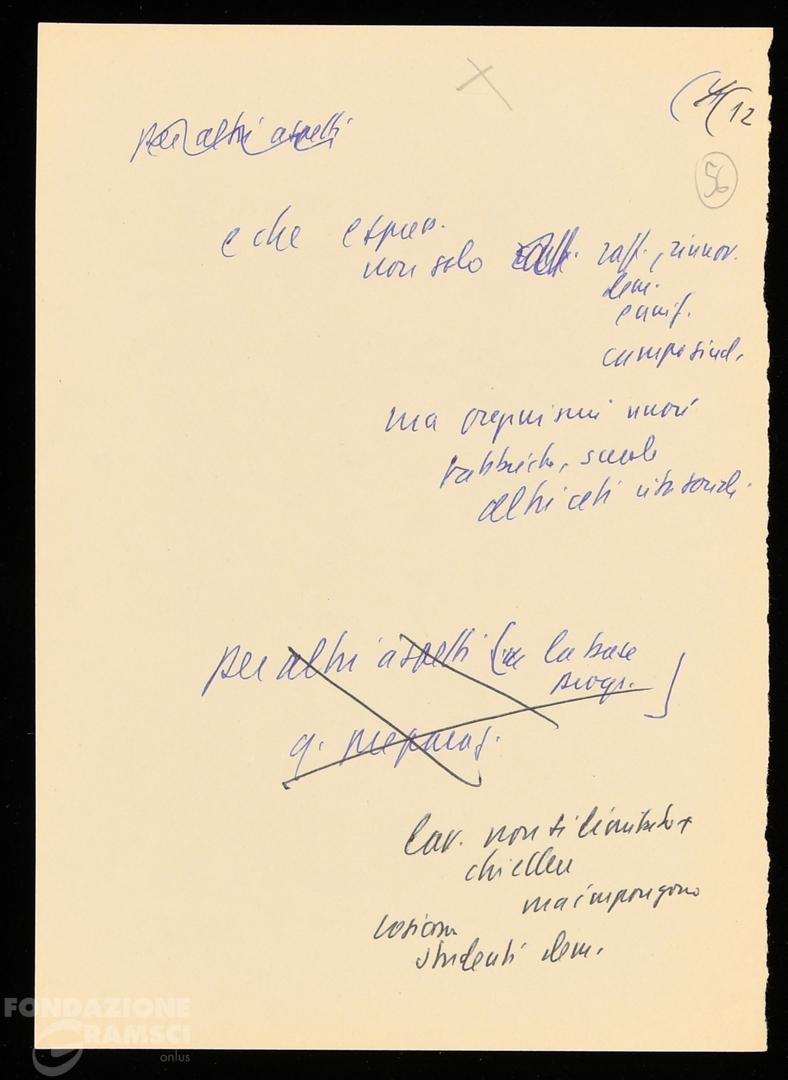 (4(12
56
per altri aspetti
e che espress.
non solo raff., rinnov.
dem.
e unif.
campo sind.
ma organismi nuovi
fabbriche, scuole
altri ceti
per altri aspetti (la base
progr.
g. preparaz.
lav. non si limitano +
chiedere
ma impongono
così come
studenti dem.
FONDAZIONE
GRAMSCI
onlus